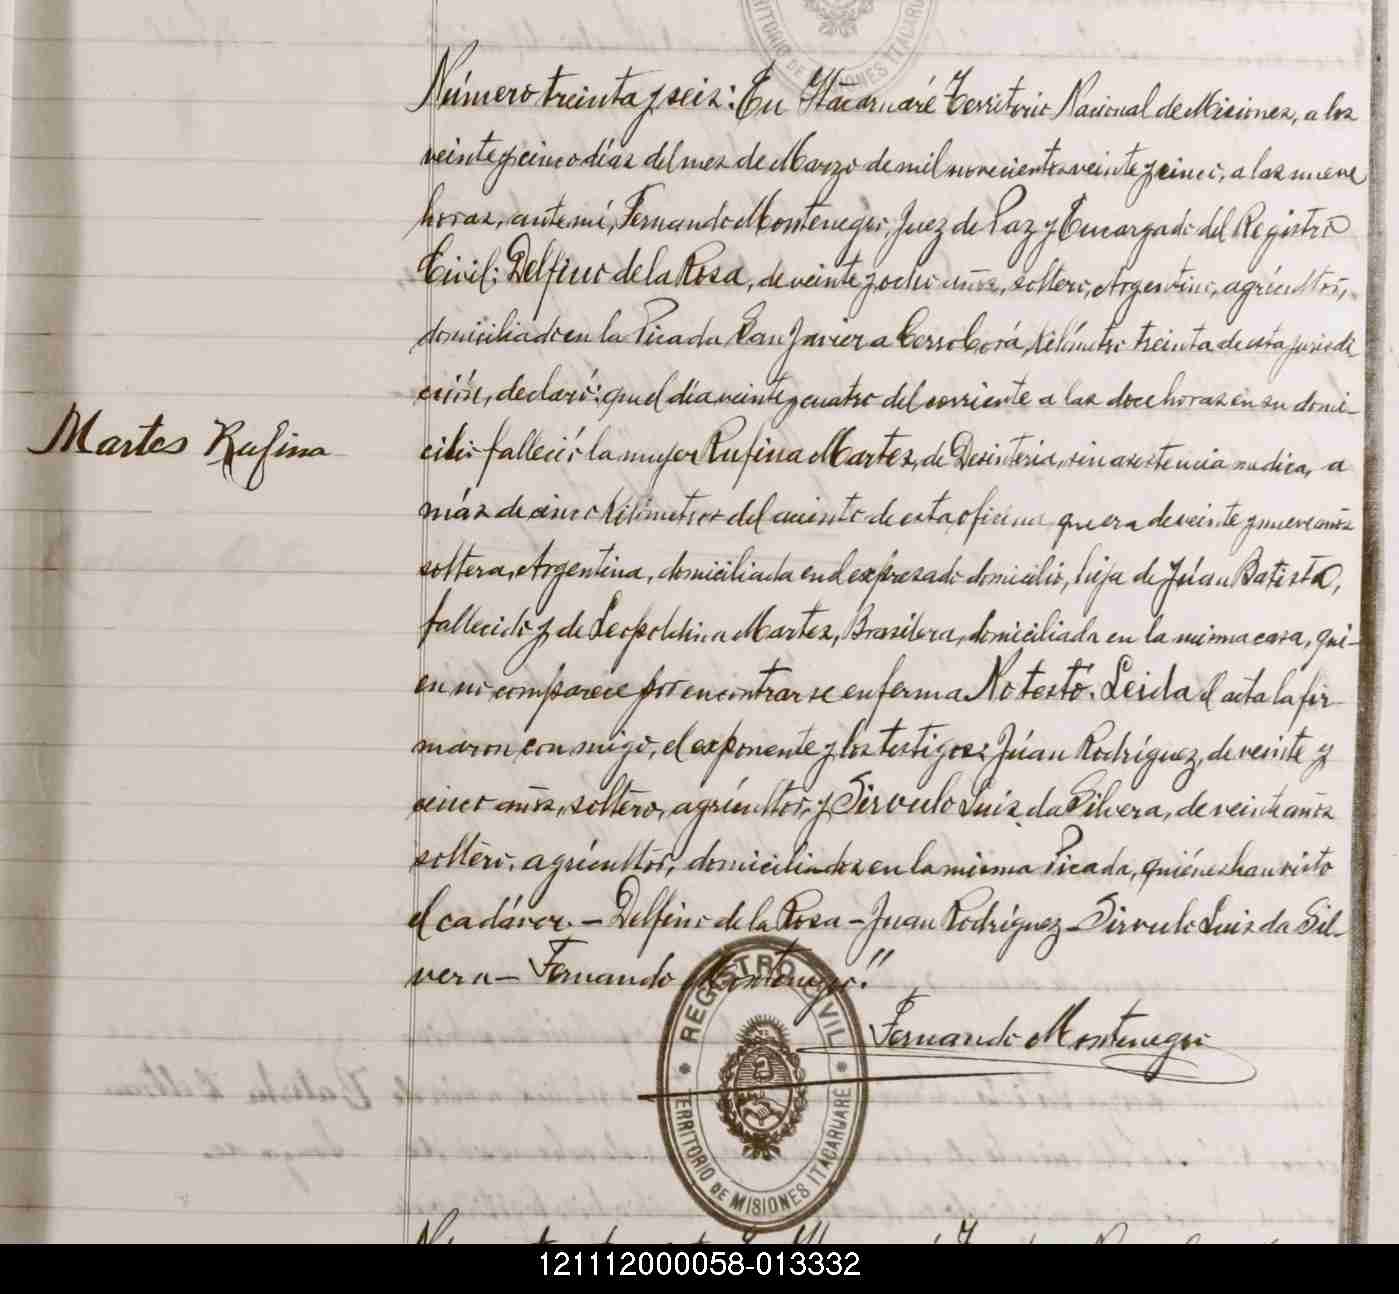 TERRITORIO DE MISIONES ITACARUARE
Número treinta y seis: En Itacaruaré Territorio Nacional de Misiones, a los
veinte y cinco días del mes de Marzo de mil novecientos veinte y cinco, a las nueve
horas, ante mí, Fernando Montenegro, Juez de Paz y Encargado del Registro
Civil: Delfino de la Rosa, de veinte y ocho años, soltero, Argentino, agricultor,
domiciliado en la Picada San Javier a Cerro Corá, kilómetro treinta de esta jurisdi
cción, declaró: que el día veinte y cuatro del corriente a las doce horas en su domi-
Martes Rufina
cilio falleció la mujer Rufina Martes, de Desinteria, sin asistencia medica, a
más de cinco kilómetros del asiento de esta oficina, que era de veinte y nueve años
soltera, Argentina, domiciliada en el expresado domicilio, hija de Júan Batista,
fallecido y de Leopoldina Martes, Brasilera, domiciliada en la misma casa, qui-
en no comparece por encontrarse enferma No testó. Leida el acta la fir-
maron conmigo, el exponente y los testigos: Júan Rodríguez, de veinte y
cinco años, soltero, agricultor, y Sirvulo Luis da Silvera, de veinte años
soltero, agricultor, domiciliados en la misma Picada, quiénes han visto
el cadáver. — Delfino de la Rosa — Juan Rodríguez — Sirvulo Luis da Sil-
vera — Fernando Montenegro."
Fernando Montenegro
REGISTRO CIVIL
TERRITORIO DE MISIONES ITACARUARE
121112000058-013332